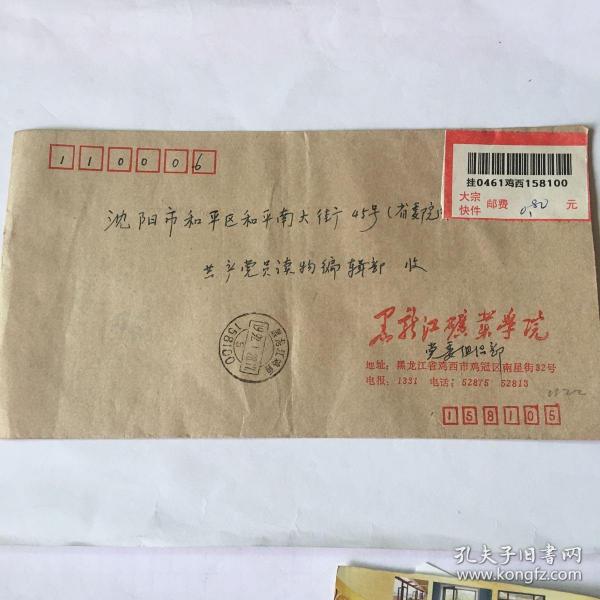 110006
挂0461鸡西158100
大宗 邮费 0.80 元
快件
沈阳市和平区和平南大街45号(省委院
共产党员读物编辑部 收
158100
黑龙江矿业学院
党委组织部
地址:黑龙江省鸡西市鸡冠区南星街32号
电报:1331 电话:52875 52813
158105
孔夫子旧书网
www.kongfz.com